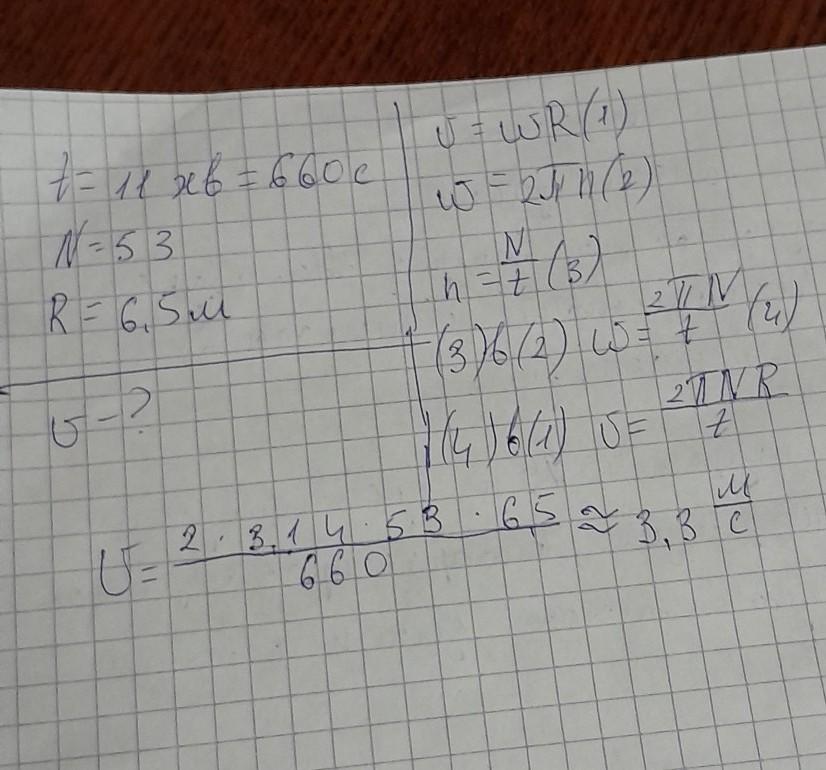 t = 11 хв = 660 с
N = 53
R = 6,5 м
υ - ?
υ = ωR (1)
ω = 2πn (2)
n = N/t (3)
(3) в (2) ω = 2πN/t (4)
(4) в (1) υ = 2πNR/t
υ = 2 · 3,14 · 53 · 6,5 / 660 ≈ 3,3 м/с